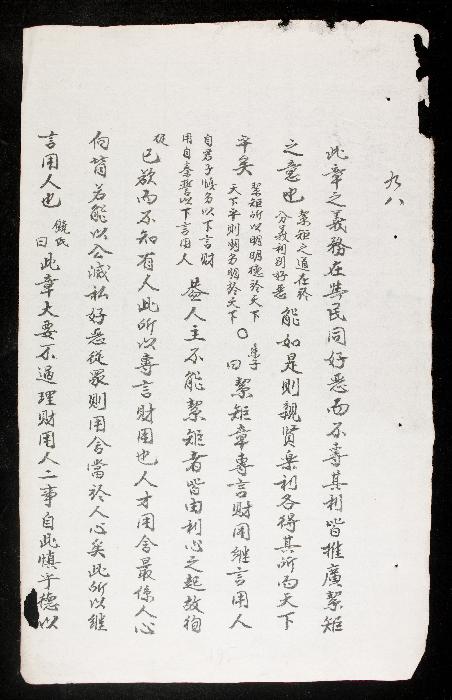 九八
此章之義務在與民同好惡而不專其利皆推廣絜矩
之意也 絜矩之道在於分義利別好惡 能如是則親賢樂利各得其所而天下
平矣 絜矩所以明明德於天下天下平則明明德於天下 ○ 朱子曰絜矩章專言財用繼言用人
自君子慎德以下言財用自秦誓以下言用人 蓋人主不能絜矩者皆由利心之起故徇
從 己欲而不知有人此所以專言財用也人才用舍最係人心
向背若能以公滅私好惡從眾則用舍當於人心矣此所以繼
言用人也 饒氏曰此章大要不過理財用人二事自此慎乎德以